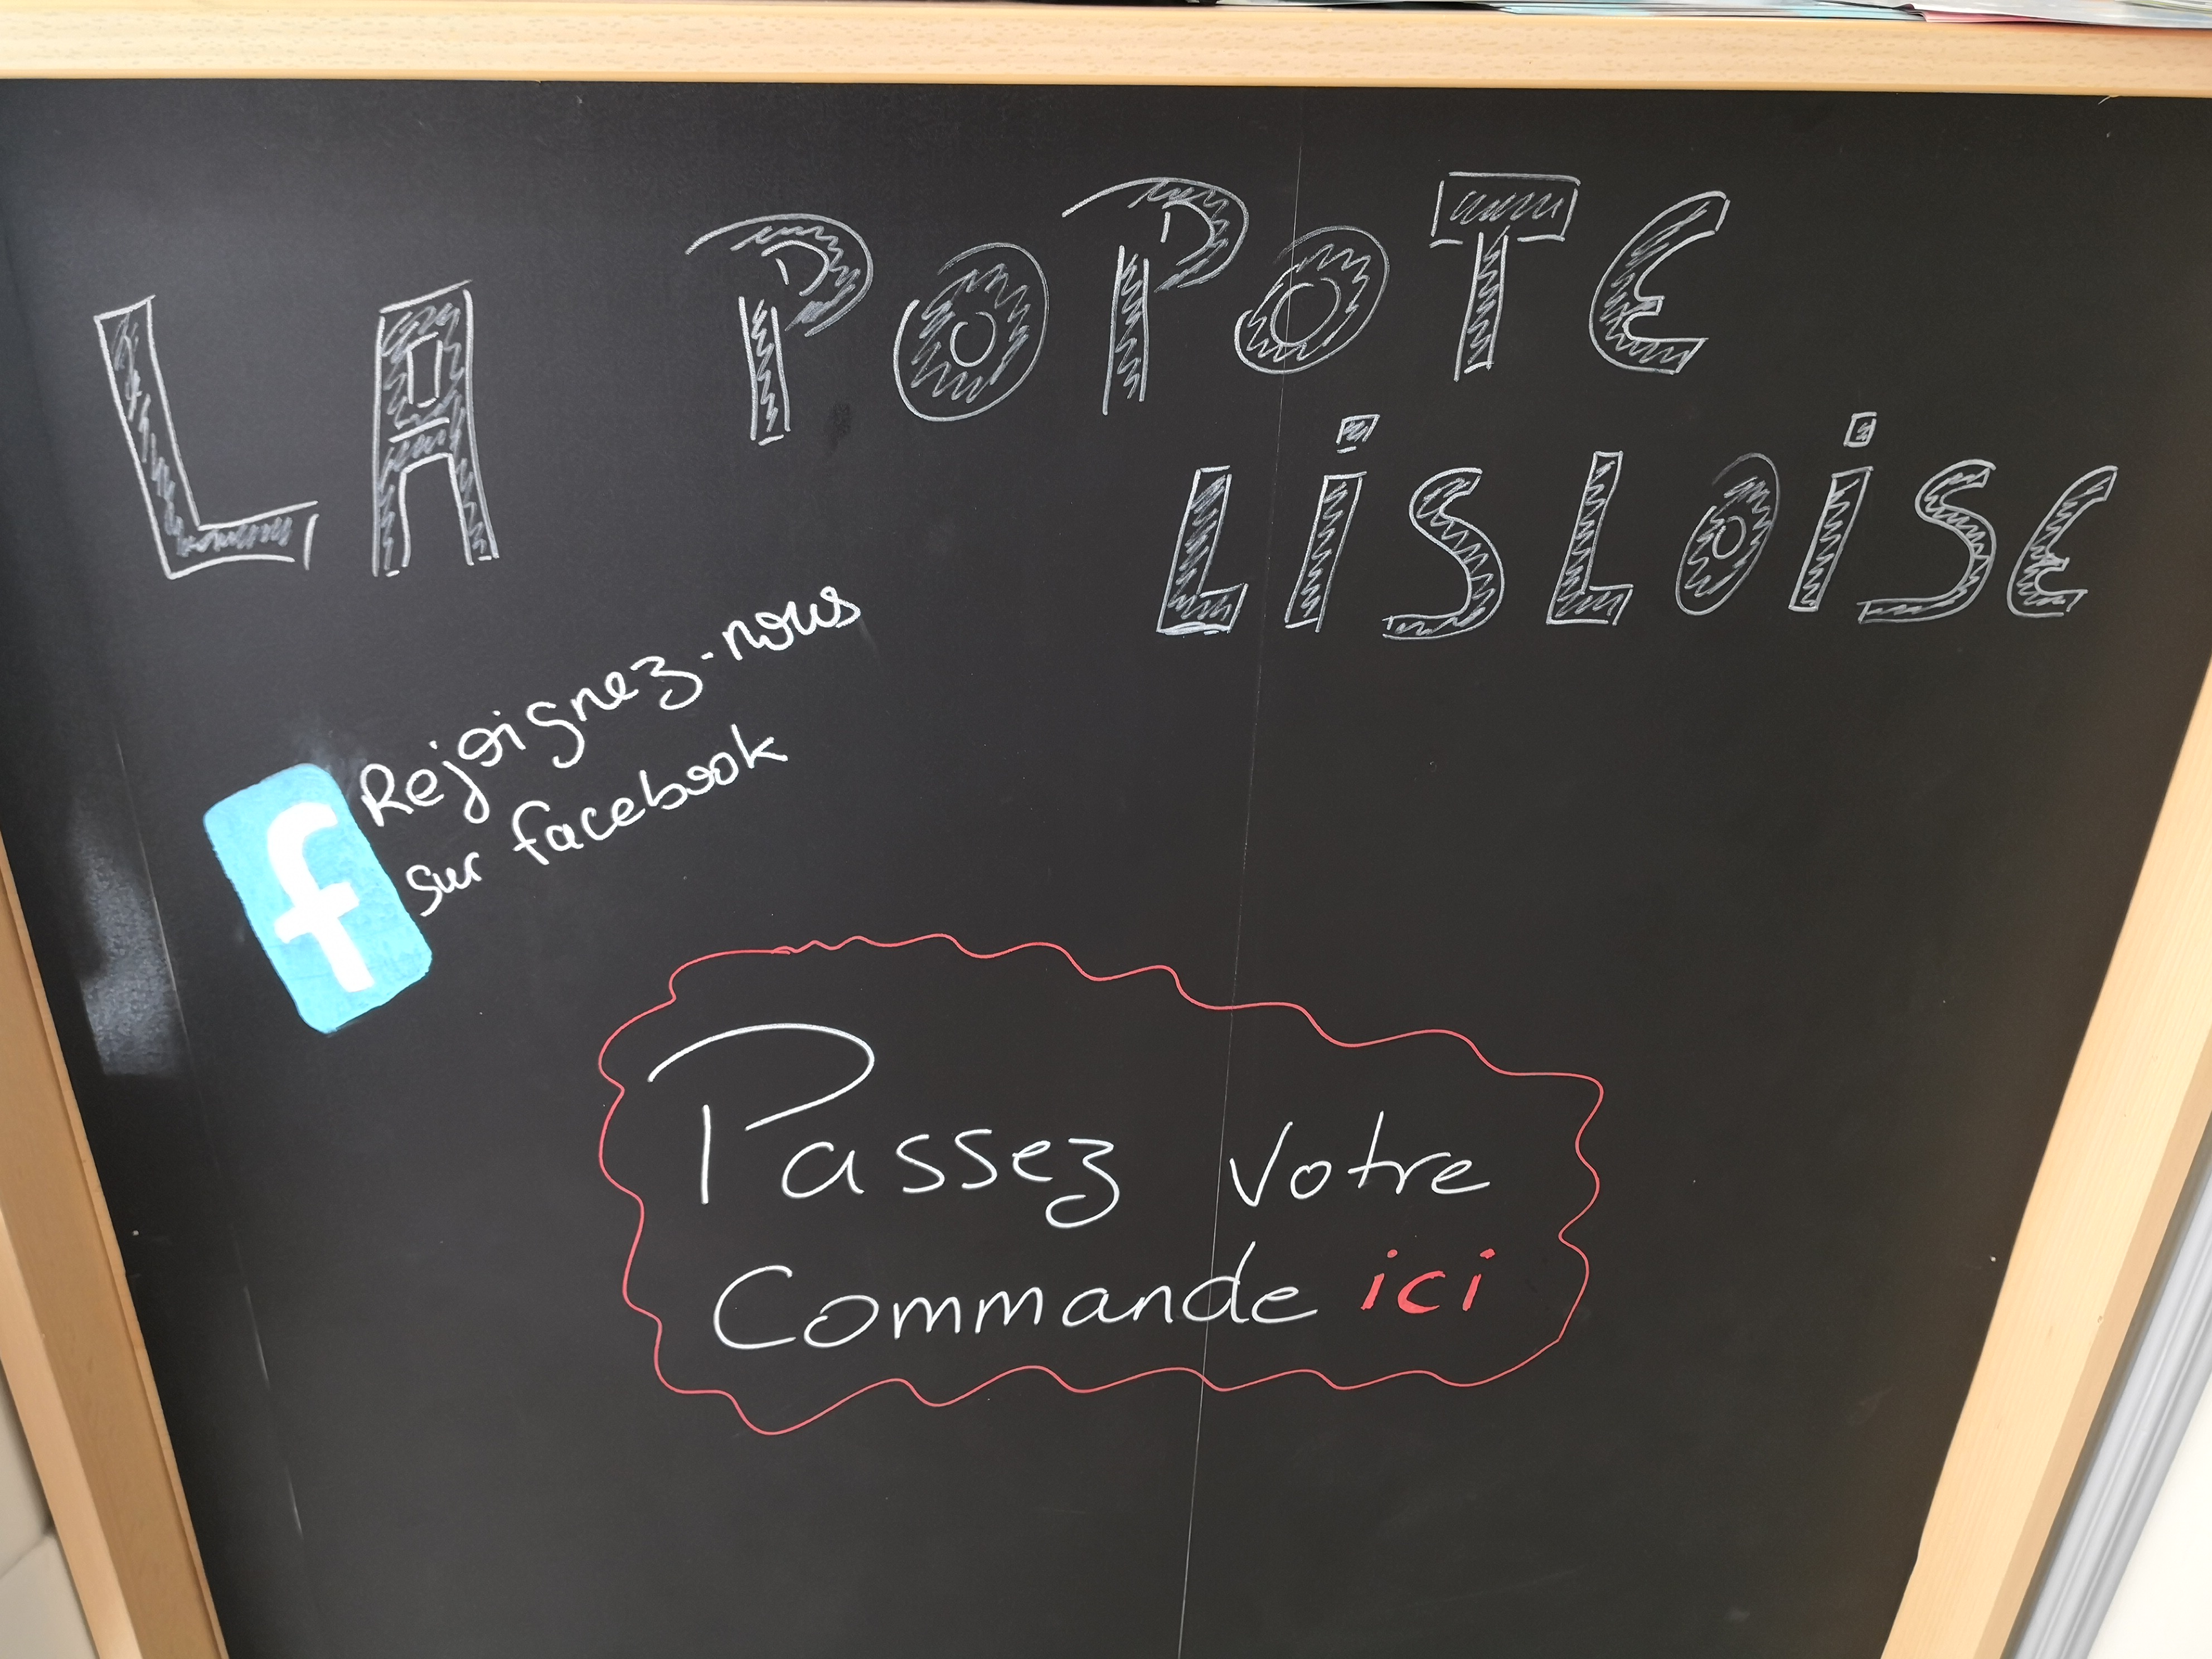 LA POPOTE
LiSLOiSE
Rejoignez-nous
sur facebook
f
Passez votre
Commande ici